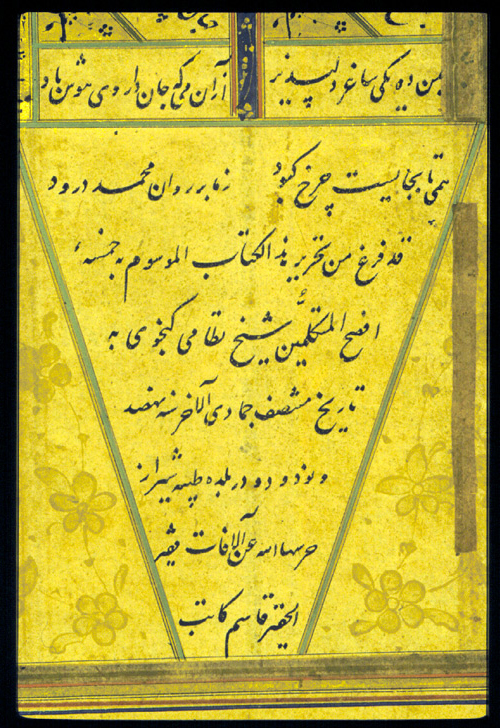 بمن ده یکی ساغر دلپذیر
از آن می که جان داروی هوش باد
همی تا بجایست چرخ کبود
ز ما بر روان محمد درود
قد فرغ من تحریر هذا الکتاب الموسوم به خمسهٔ
افصح المتکلمین شیخ نظامی کنجوی به
تاریخ منتصف جمادی الآخر سنه نهصد
و نود و دو در بلده طیبه شیراز
حرسها الله عن الآفات فقیر
الحقیر قاسم کاتب